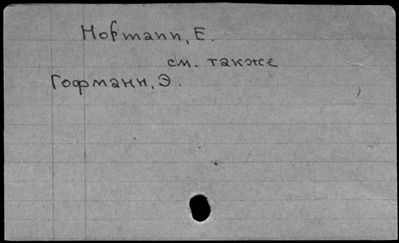 Hofmann, E.
см. также
Гофманн, Э.